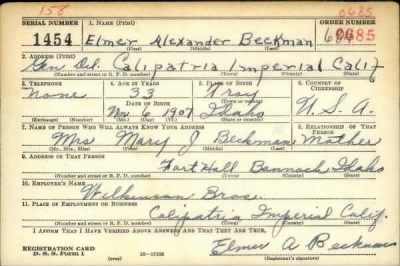 158 0685
SERIAL NUMBER 1. NAME (Print) ORDER NUMBER
1454 Elmer Alexander Beckman 0685
(First) (Middle) (Last)
2. ADDRESS (Print)
Gen Del. Calipatria Imperial Calif
(Number and street or R. F. D. number) (Town) (County) (State)
3. TELEPHONE 4. AGE IN YEARS 5. PLACE OF BIRTH 6. COUNTRY OF CITIZENSHIP
None 33 Troy U.S.A.
DATE OF BIRTH (Town or county)
Nov 6 1907 Idaho
(Exchange) (No.) (Mo.) (Day) (Yr.) (State or country)
7. NAME OF PERSON WHO WILL ALWAYS KNOW YOUR ADDRESS 8. RELATIONSHIP OF THAT PERSON
Mrs Mary J Beckman Mother
(Mr., Mrs., Miss) (First) (Middle) (Last)
9. ADDRESS OF THAT PERSON
Fort Hall Bannock Idaho
(Number and street or R. F. D. number) (Town) (County) (State)
10. EMPLOYER'S NAME
Wilkinson Bros.
11. PLACE OF EMPLOYMENT OR BUSINESS
Calipatria Imperial Calif.
(Number and street or R. F. D. number) (Town) (County) (State)
I AFFIRM THAT I HAVE VERIFIED ABOVE ANSWERS AND THAT THEY ARE TRUE.
REGISTRATION CARD Elmer A Beckman
D. S. S. Form 1 (over) (Registrant's signature)